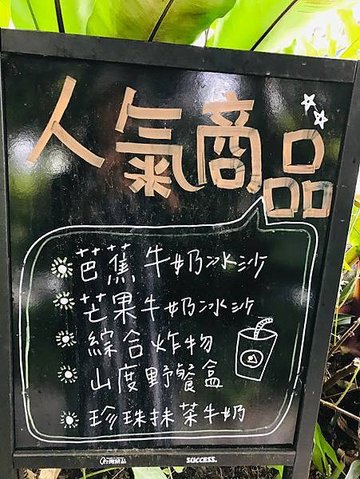 人氣商品
芭蕉牛奶冰沙
芒果牛奶冰沙
綜合炸物
山度野餐盒
珍珠抹茶牛奶
SUCCESS.